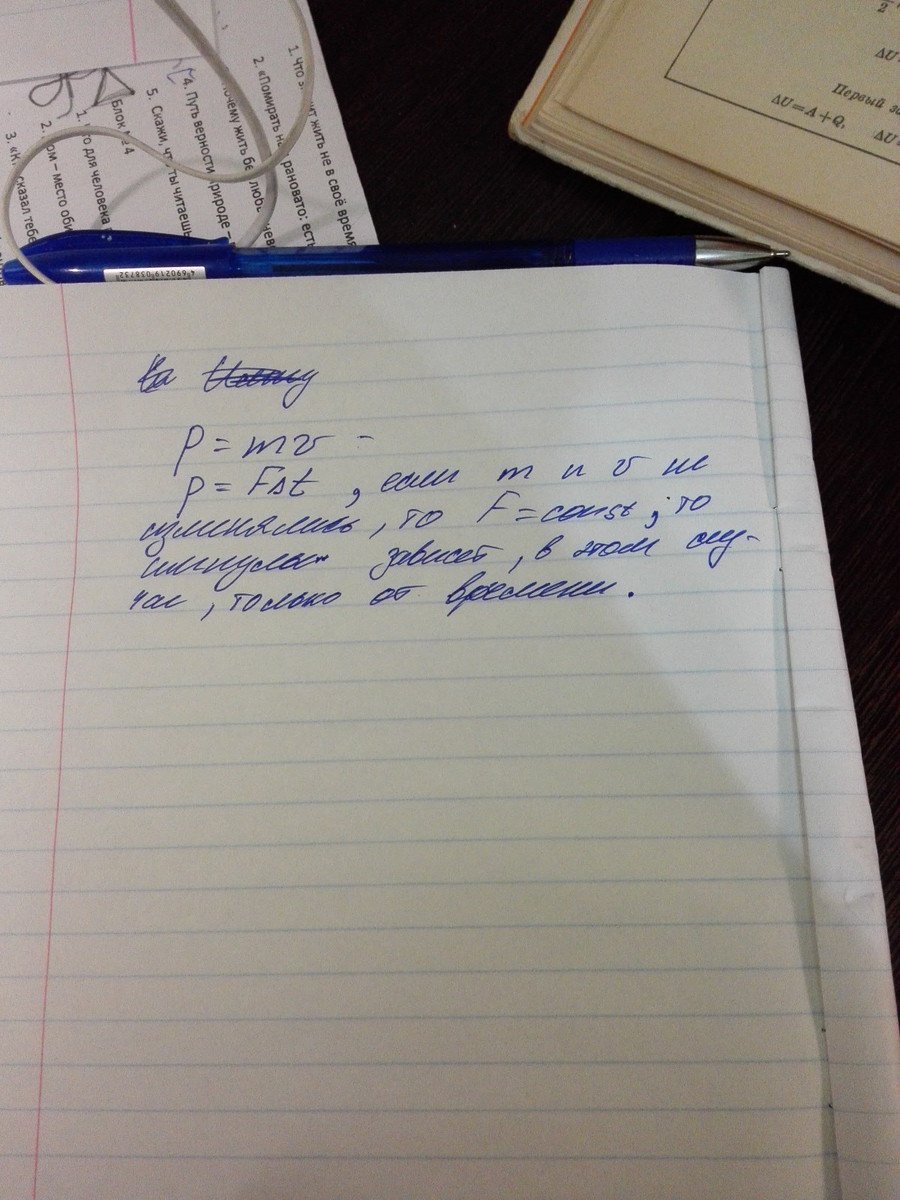 1. Что з ит жить не в своё время
2. «Помирать н рановато: есть
очему жить бе люб
4. Путь верности природе –
5. Скажи, чт ты читаешь
Блок № 4
1. то для человека
2. ом – место оби
3. «К сказал тебе
4690219038732
2
ΔU
Первый за
ΔU=A+Q, ΔU
На
p = mv =
p = FΔt , если m и v не
изменялись, то F = const, то
импульс зависет, в этом слу-
чаи, только от времени.